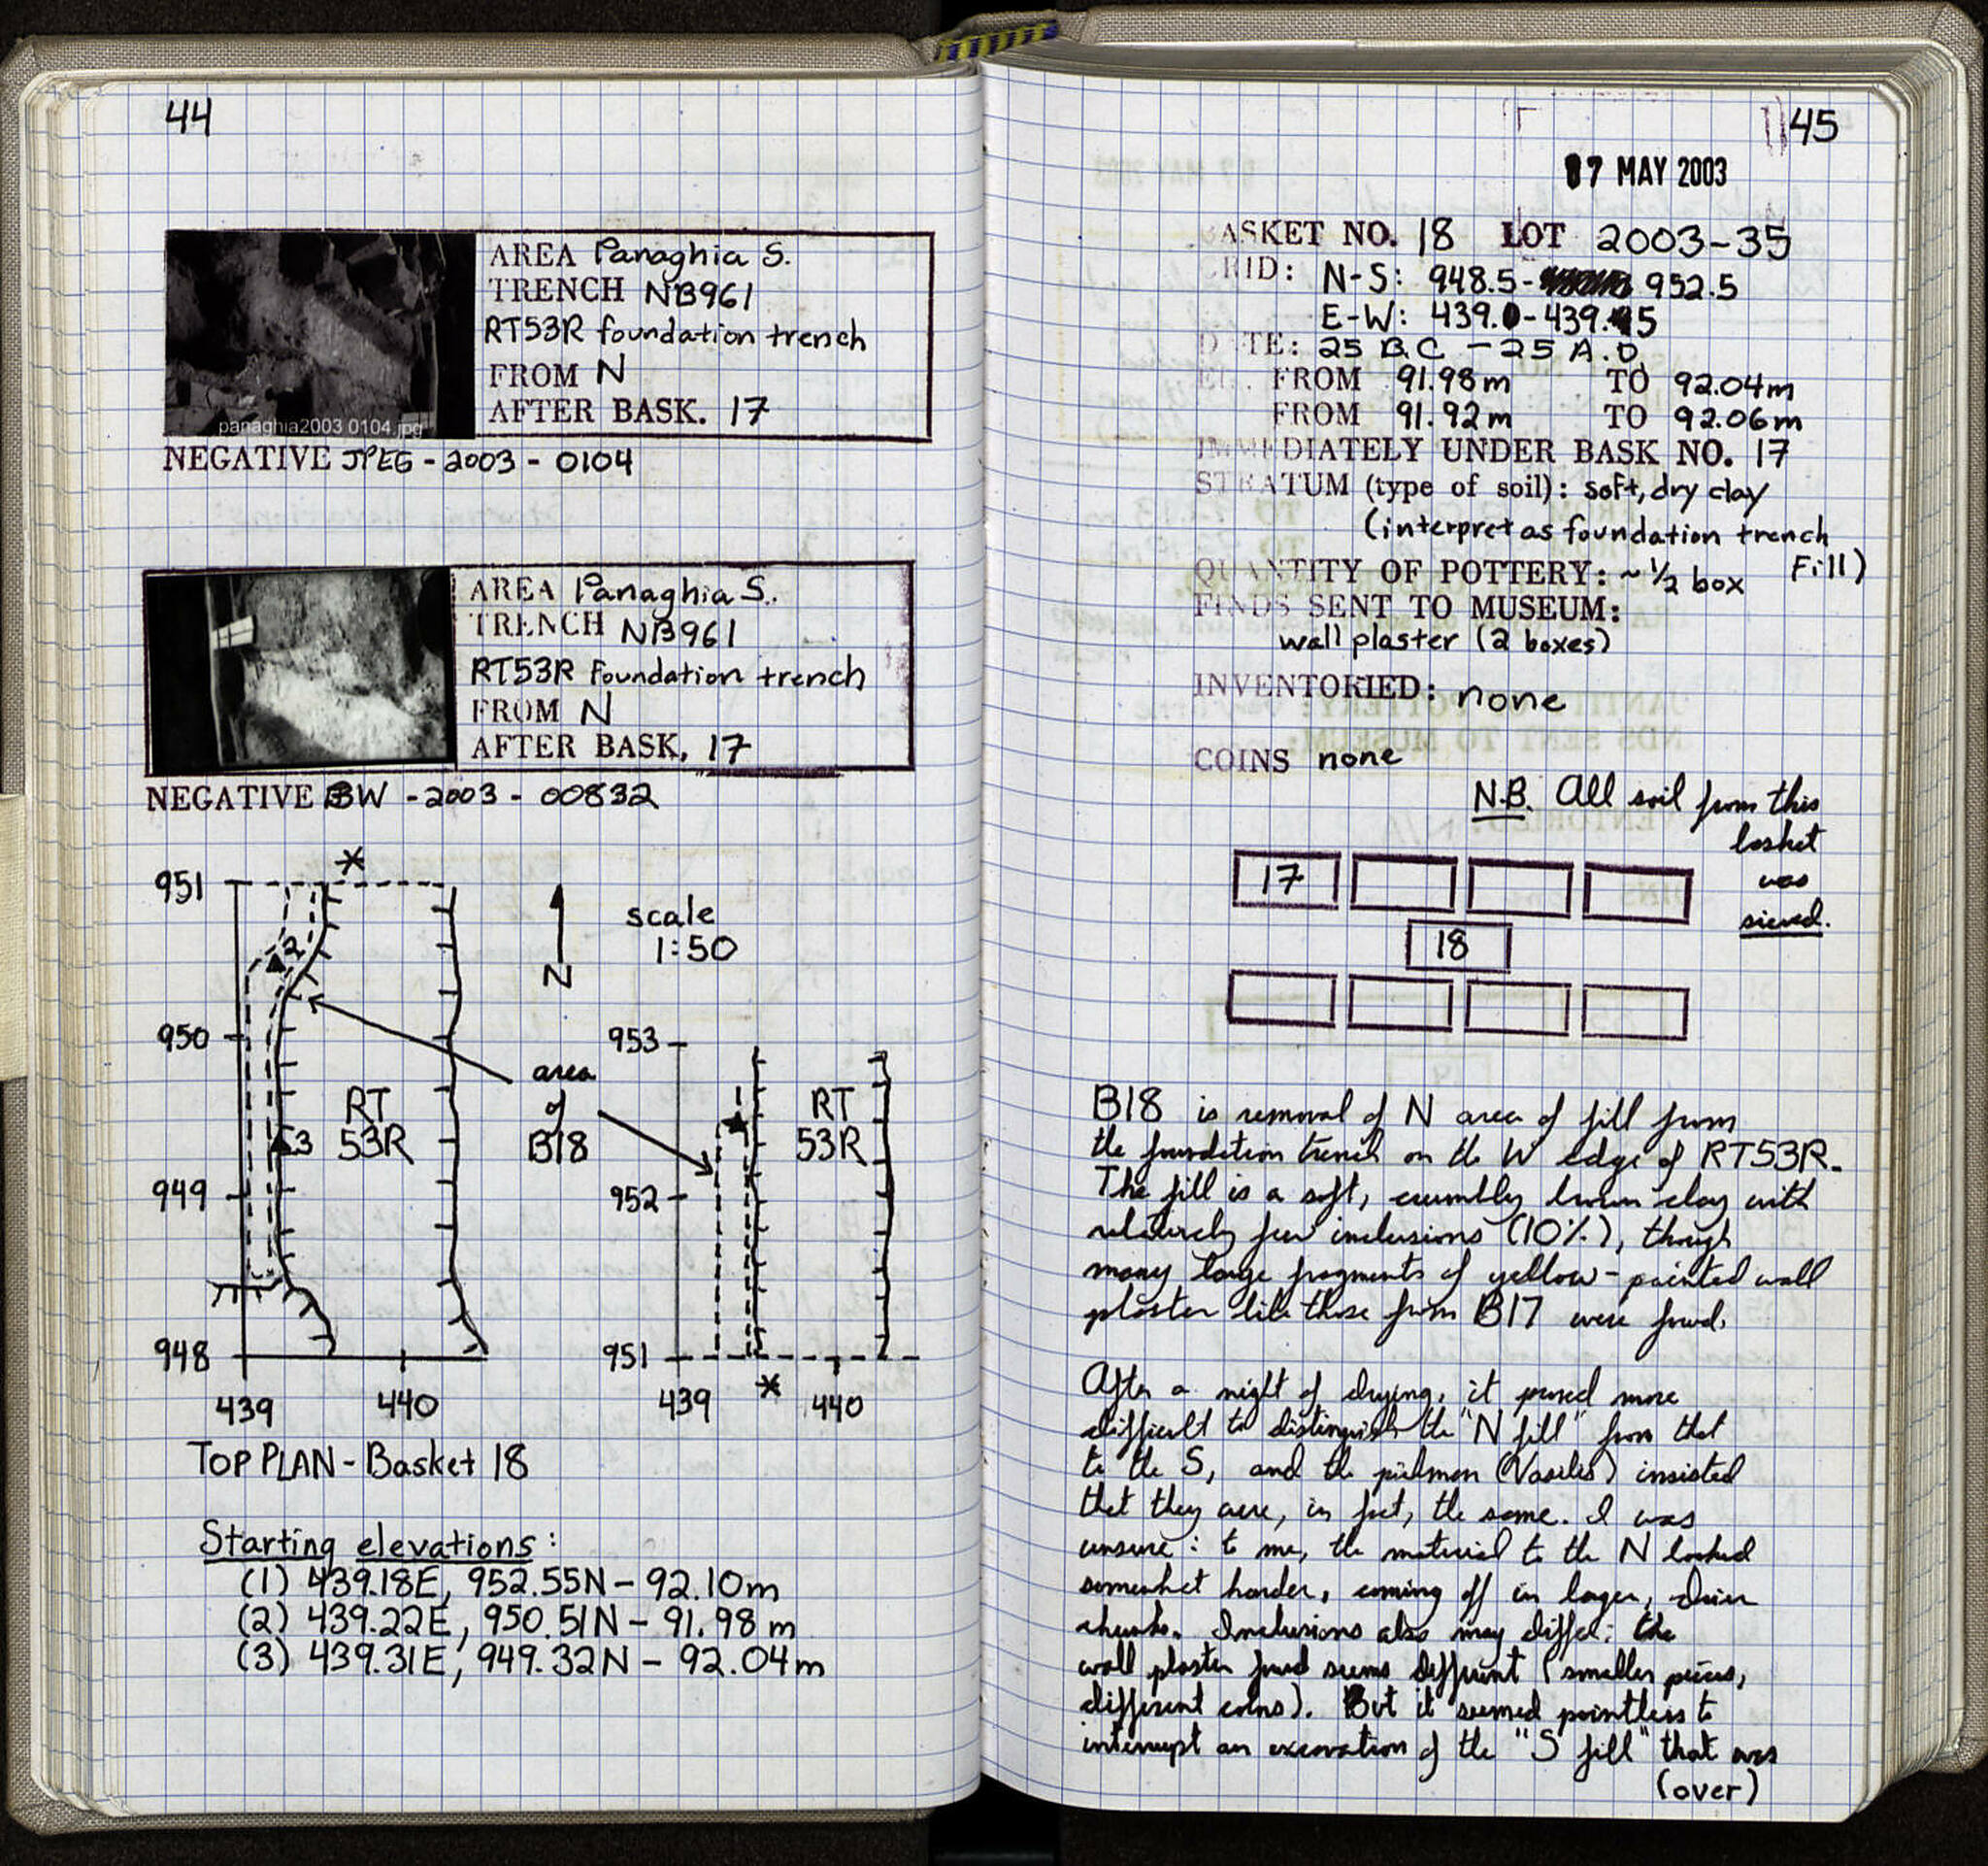 44
AREA Panaghia S.
TRENCH NB961
RT53R foundation trench
FROM N
AFTER BASK. 17
panaghia2003 0104.jpg
NEGATIVE JPEG - 2003 - 0104
AREA Panaghia S.
TRENCH NB961
RT53R Foundation trench
FROM N
AFTER BASK. 17
NEGATIVE BW - 2003 - 00832
*
951
2
N
scale
1:50
950
953
area
of
B18
RT
53R
3
1
RT
53R
949
952
948
951
439
440
439
*
440
TOP PLAN - Basket 18
Starting elevations:
(1) 439.18E, 952.55N - 92.10m
(2) 439.22E, 950.51N - 91.98 m
(3) 439.31E, 949.32N - 92.04m
45
07 MAY 2003
BASKET NO. 18 LOT 2003-35
GRID: N-S: 948.5- 952.5
E-W: 439.0-439.
DATE: 25 B.C - 25 A.D.
EL. FROM 91.98m TO 92.04m
FROM 91.92m TO 92.06m
IMMEDIATELY UNDER BASK NO. 17
STRATUM (type of soil): soft, dry clay
(interpret as foundation trench
Fill)
QUANTITY OF POTTERY: ~ 1/2 box
FINDS SENT TO MUSEUM:
wall plaster (2 boxes)
INVENTORIED: none
COINS none
N.B. All soil from this
basket
was
sieved.
17
18
B18 is removal of N area of fill from
the foundation trench on the W edge of RT53R.
The fill is a soft, crumbly brown clay with
relatively few inclusions (10%), though
many large fragments of yellow-painted wall
plaster like those from B17 were found.
After a night of drying, it proved more
difficult to distinguish the "N fill" from that
to the S, and the pickman (Vasilis) insisted
that they were, in fact, the same. I was
unsure: to me, the material to the N looked
somewhat harder, coming off in larger, drier
chunks. Inclusions also may differ: the
wall plaster found seems different (smaller pieces,
different colors). But it seemed pointless to
interrupt an excavation of the "S fill" that was
(over)